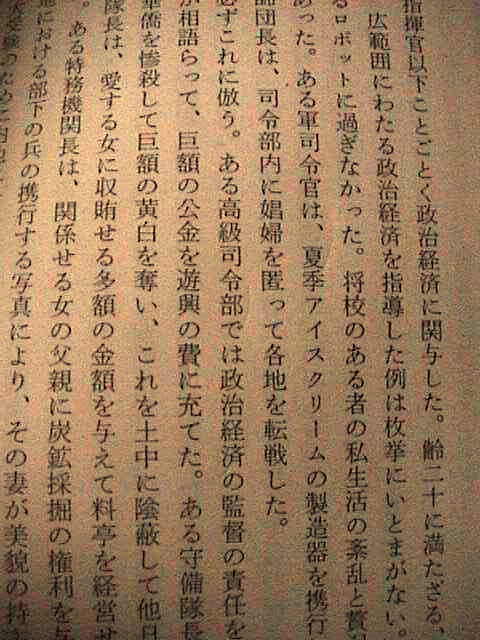 指揮官以下ことごとく政治経済に関与した。齢二十に満たざる、
広範囲にわたる政治経済を指導した例は枚挙にいとまがない
るロボットに過ぎなかった。将校のある者の私生活の紊乱と貪
あった。ある軍司令官は、夏季アイスクリームの製造器を携行
師団長は、司令部内に娼婦を匿って各地を転戦した。
必ずこれに倣う。ある高級司令部では政治経済の監督の責任を
が相語らって、巨額の公金を遊興の費に充てた。ある守備隊長
華僑を惨殺して巨額の黄白を奪い、これを土中に隠蔽して他日
隊長は、愛する女に収賄せる多額の金額を与えて料亭を経営せ
る。ある特務機関長は、関係せる女の父親に炭鉱採掘の権利を与
地における部下の兵の携行する写真により、その妻が美貌の持